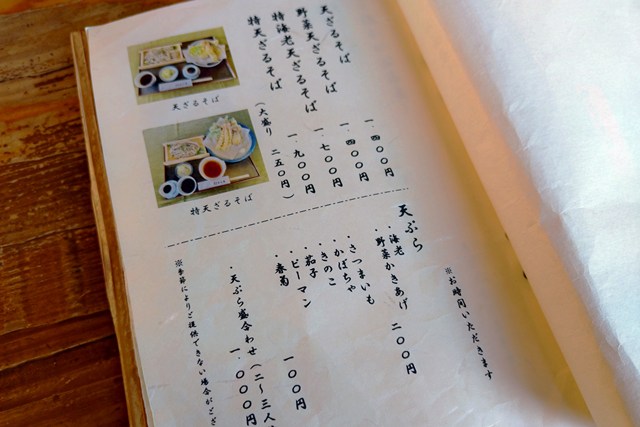 天ざるそば 一、四〇〇円
野菜天ざるそば 一、四〇〇円
特海老天ざるそば 一、七〇〇円
特天ざるそば 一、九〇〇円
（大盛り 二五〇円）
天ざるそば
特天ざるそば
天ぷら
※お時間いただきます
・海老
・野菜かきあげ 二〇〇円
・さつまいも
・かぼちゃ
・きのこ
・茄子
・ピーマン
・春菊 一〇〇円
・天ぷら盛合わせ（二〜三人
一、〇〇〇円
※季節によりご提供できない場合がござ